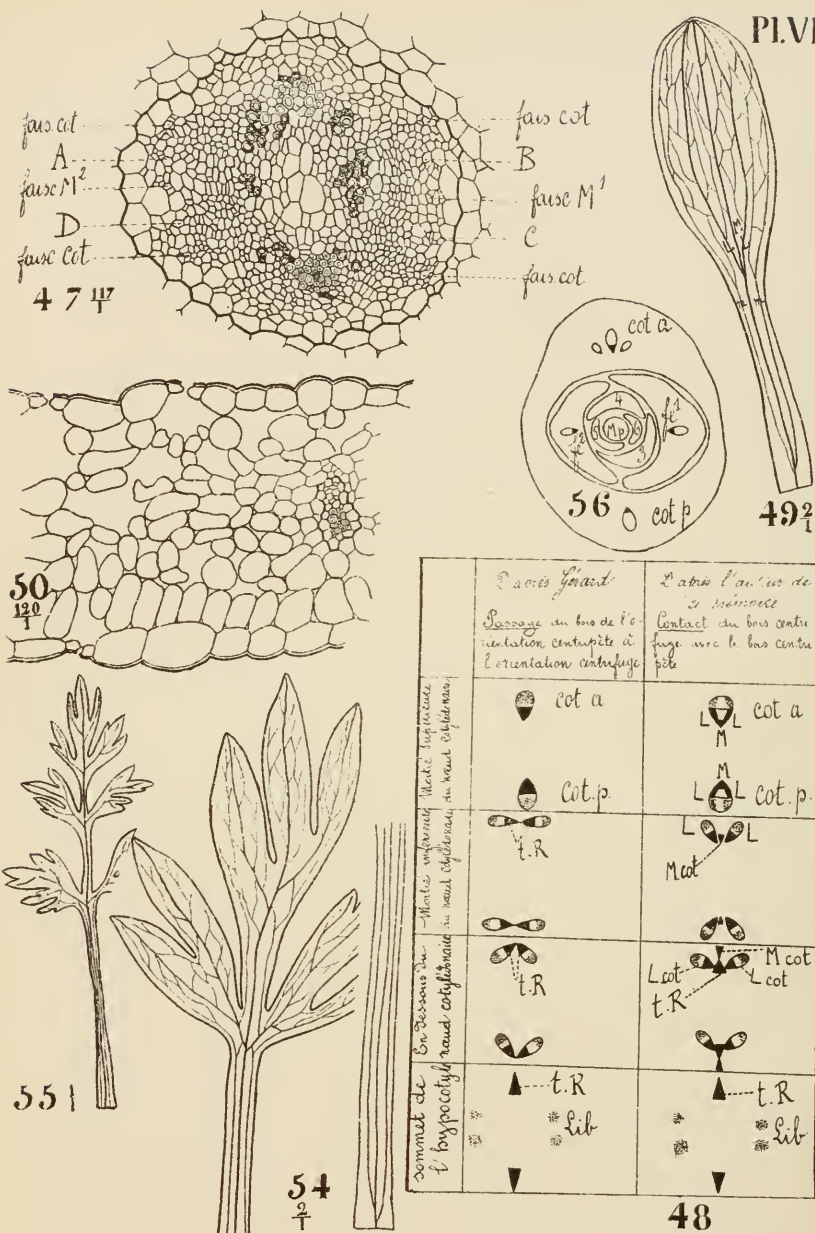 Pl.VI
fais. cot
A
faisc M²
D
faisc Cot
fais cot
B
faisc M¹
C
fais. cot
47 117/1
cot a
4
fl¹
fl²
5 Mp 6
3
56
cot p
49 2/1
50
120/1
D'après Gérard
Passage du bois de l'o-
rientation centripète à
l'orientation centrifuge
D'après l'auteur de
ce mémoire
Contact du bois centri
fuge avec le bois centri
pète
Moitié supérieure
du nœud cotylédonaire
cot a
cot. p.
L L
M
cot a
M
L L
cot. p.
Moitié inférieure
du nœud cotylédonaire
t.R
L L
M cot
En dessous du
nœud cotylédonaire
t.R
M cot
L cot
L cot
t.R
sommet de
l'hypocotyle
t.R
Lib
t.R
Lib
48
55 1
54
2/1